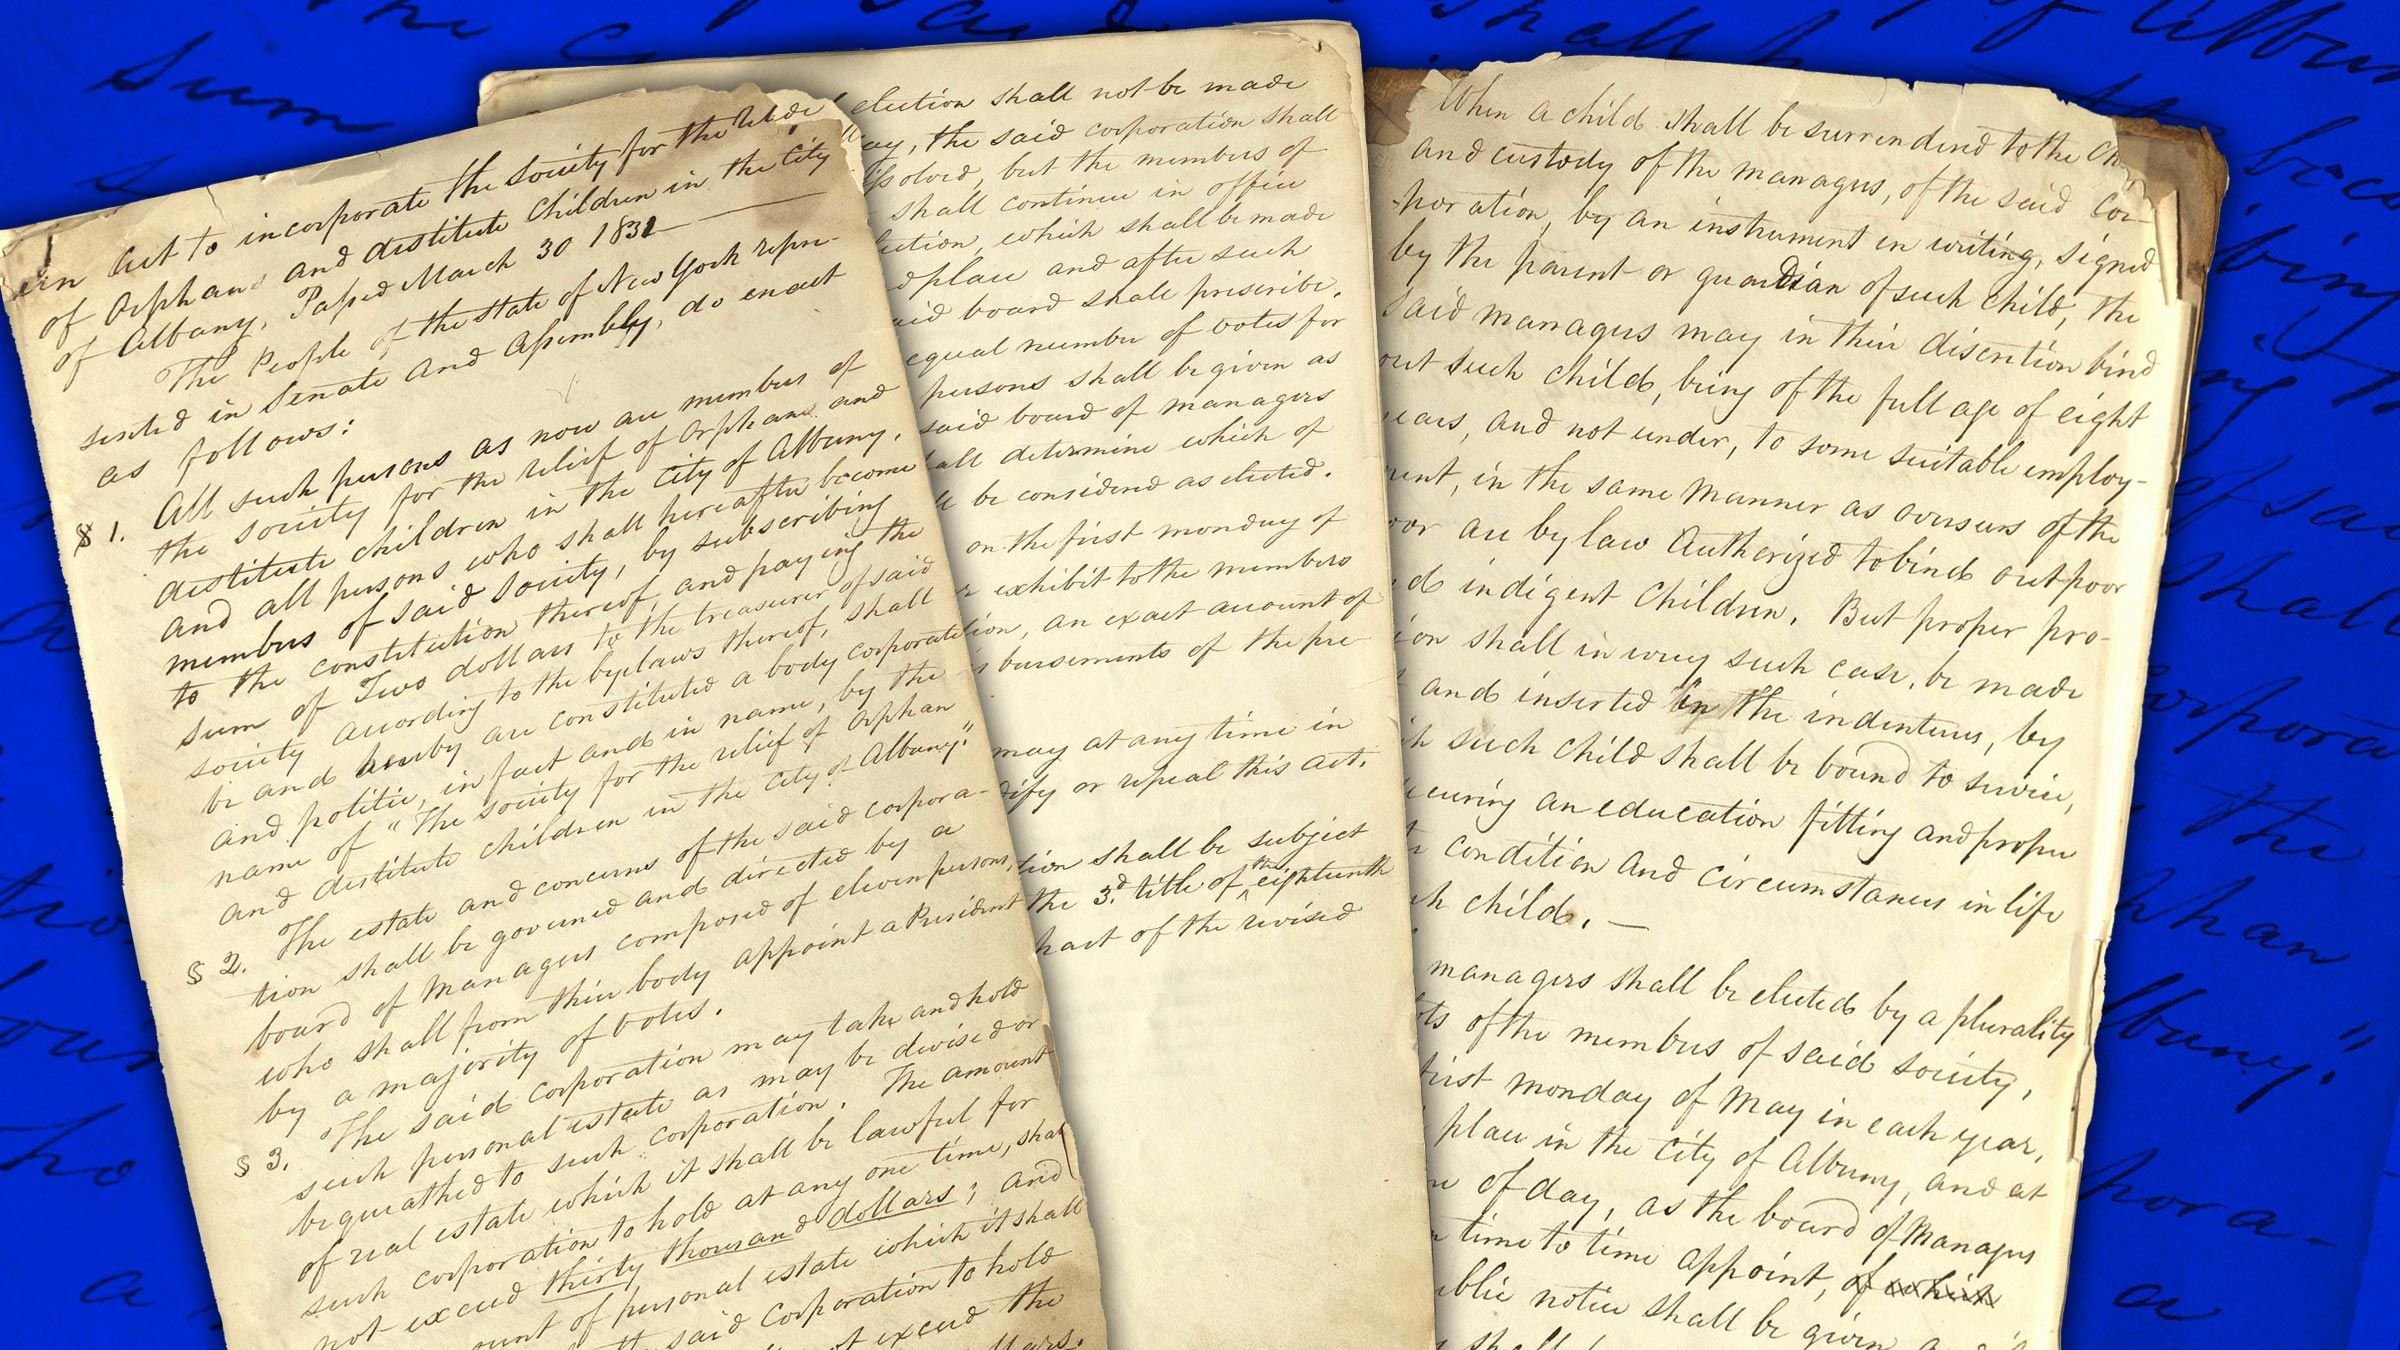 An Act to incorporate the Society for the Relief
of Orphans and destitute Children in the City
of Albany, Passed March 30 1831
The People of the State of New York repre-
sented in Senate and Assembly, do enact
as follows:
§ 1. All such persons as now are members of
the society for the relief of orphans and
destitute children in the City of Albany,
and all persons who shall hereafter become
members of said Society, by subscribing
to the constitution thereof and paying the
sum of Two dollars to the treasurer of said
society according to the bylaws thereof, shall
be and hereby are constituted a body corporate
and politic, in fact and in name, by the
name of "The society for the relief of orphan
and destitute children in the City of Albany."
§ 2. The estate and concerns of the said corpora-
tion shall be governed and directed by a
board of Managers composed of eleven persons,
who shall from their body appoint a President
by a majority of votes.
§ 3. The said corporation may take and hold
such personal estate as may be devised or
bequeathed to such corporation. The amount
of real estate which it shall be lawful for
such corporation to hold at any one time, shall
not exceed thirty thousand dollars; and
amount of personal estate which it shall
said corporation to hold
not exceed the
election shall not be made
day, the said corporation shall
dissolved, but the members of
shall continue in office
election, which shall be made
and place and after such
said board shall prescribe.
equal number of votes for
persons shall be given as
said board of managers
shall determine which of
be considered as elected.
on the first monday of
exhibit to the members
tion, an exact account of
disbursements of the pre-
may at any time in
modify or repeal this act.
tion shall be subject
the 3d. title of the eighteenth
part of the revised
When a child shall be surrendered to the
and custody of the managers, of the said Cor-
poration, by an instrument in writing, signed
by the parent or guardian of such child, the
said managers may in their discretion bind
out such child, being of the full age of eight
years, and not under, to some suitable employ-
ment, in the same manner as overseers of the
poor are by law Authorized to bind out poor
and indigent children. But proper pro-
ion shall in every such case, be made
and inserted in the indentures, by
such child shall be bound to service,
securing an education fitting and proper
condition and circumstances in life
such child. —
managers shall be elected by a plurality
of the members of said society,
first monday of May in each year,
place in the City of Albany, and at
of day, as the board of Managers
time to time appoint, of which
public notice shall be given